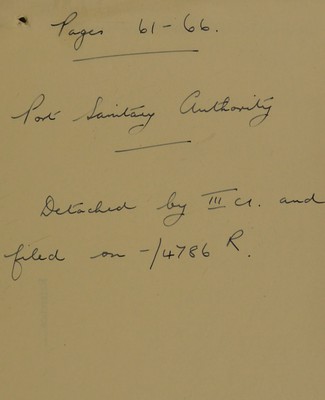 Pages 61-66.
Port Sanitary Authority
Detached by III Cl. and
filed on -/4786 R.